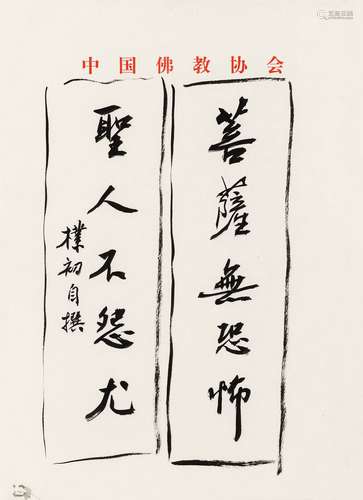 中国佛教协会
菩薩無恐怖
聖人不怨尤
樸初自撰